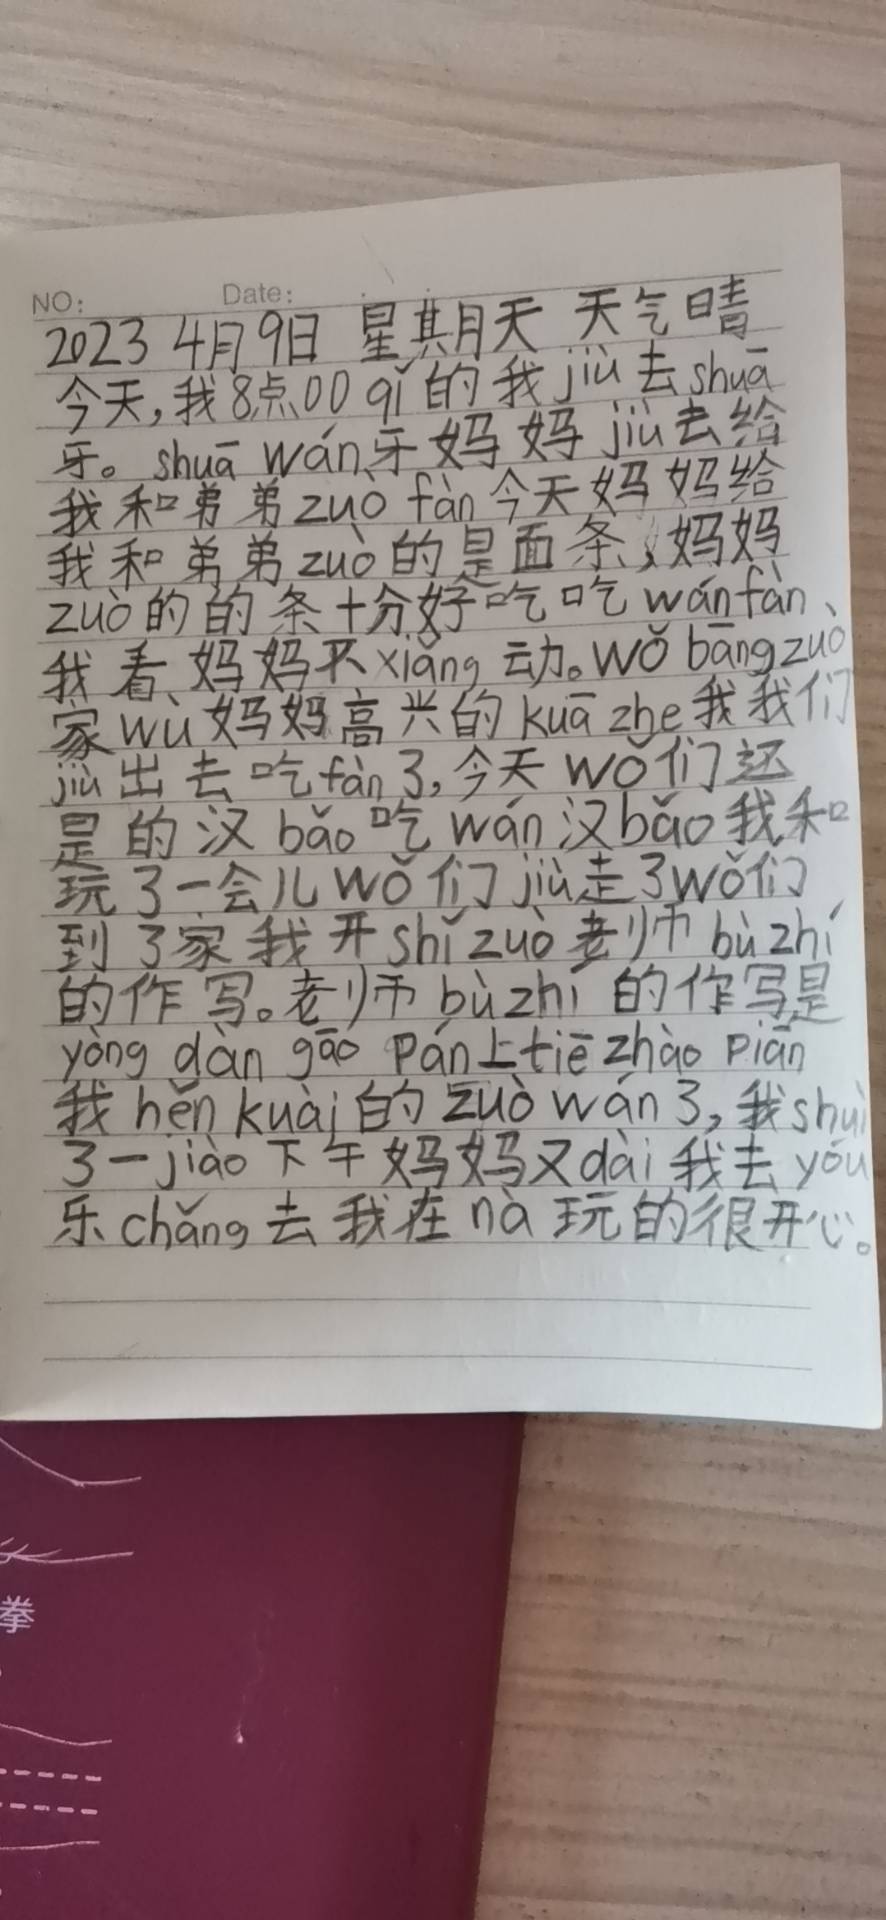 NO:
Date:
2023 4月9日 星期天 天气晴
今天,我8点00 qǐ的我jiù去shuā
牙。shuā wán牙妈妈jiù去给
我和弟弟zuò fàn今天妈妈给
我和弟弟zuò的是面条,妈妈
zuò的的条十分好吃吃wánfàn、
我看妈妈不xiǎng动。wǒ bāngzuò
家wù妈妈高兴的kuā zhe我我们
jiù出去吃fàn了,今天wǒ们还
是的汉bǎo吃wán汉bǎo我和
玩了一会儿wǒ们jiù走了wǒ们
到了家我开shǐ zuò老师bù zhí
的作写。老师bù zhí的作写是
yòng dàn gāo pán上tiē zhào piān
我hěn kuài的zuò wán了,我shuì
了一jiào下午妈妈又dài我去yóu
乐chǎng去我在nà玩的很开心。
拳